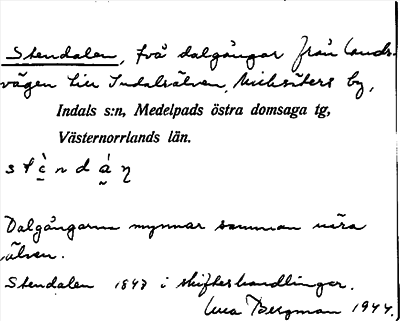 Stendalen, två dalgångar från lands-
vägen till Indalsälven, Nilsböles by,
Indals s:n, Medelpads östra domsaga tg,
Västernorrlands län.
Dalgångarna mynnar samman nära
älven.
Stendalen 1847 i skifteshandlingar.
Bergman 1944.